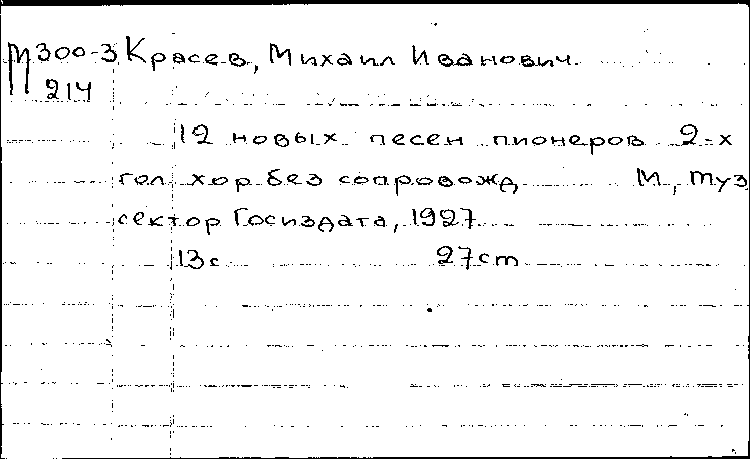 М300-3 Красев, Михаил Иванович.
214
12 новых песен пионеров 2-х
гол. хор без сопровожд, М, Муз
сектор Госиздата, 1927
13с 27cm